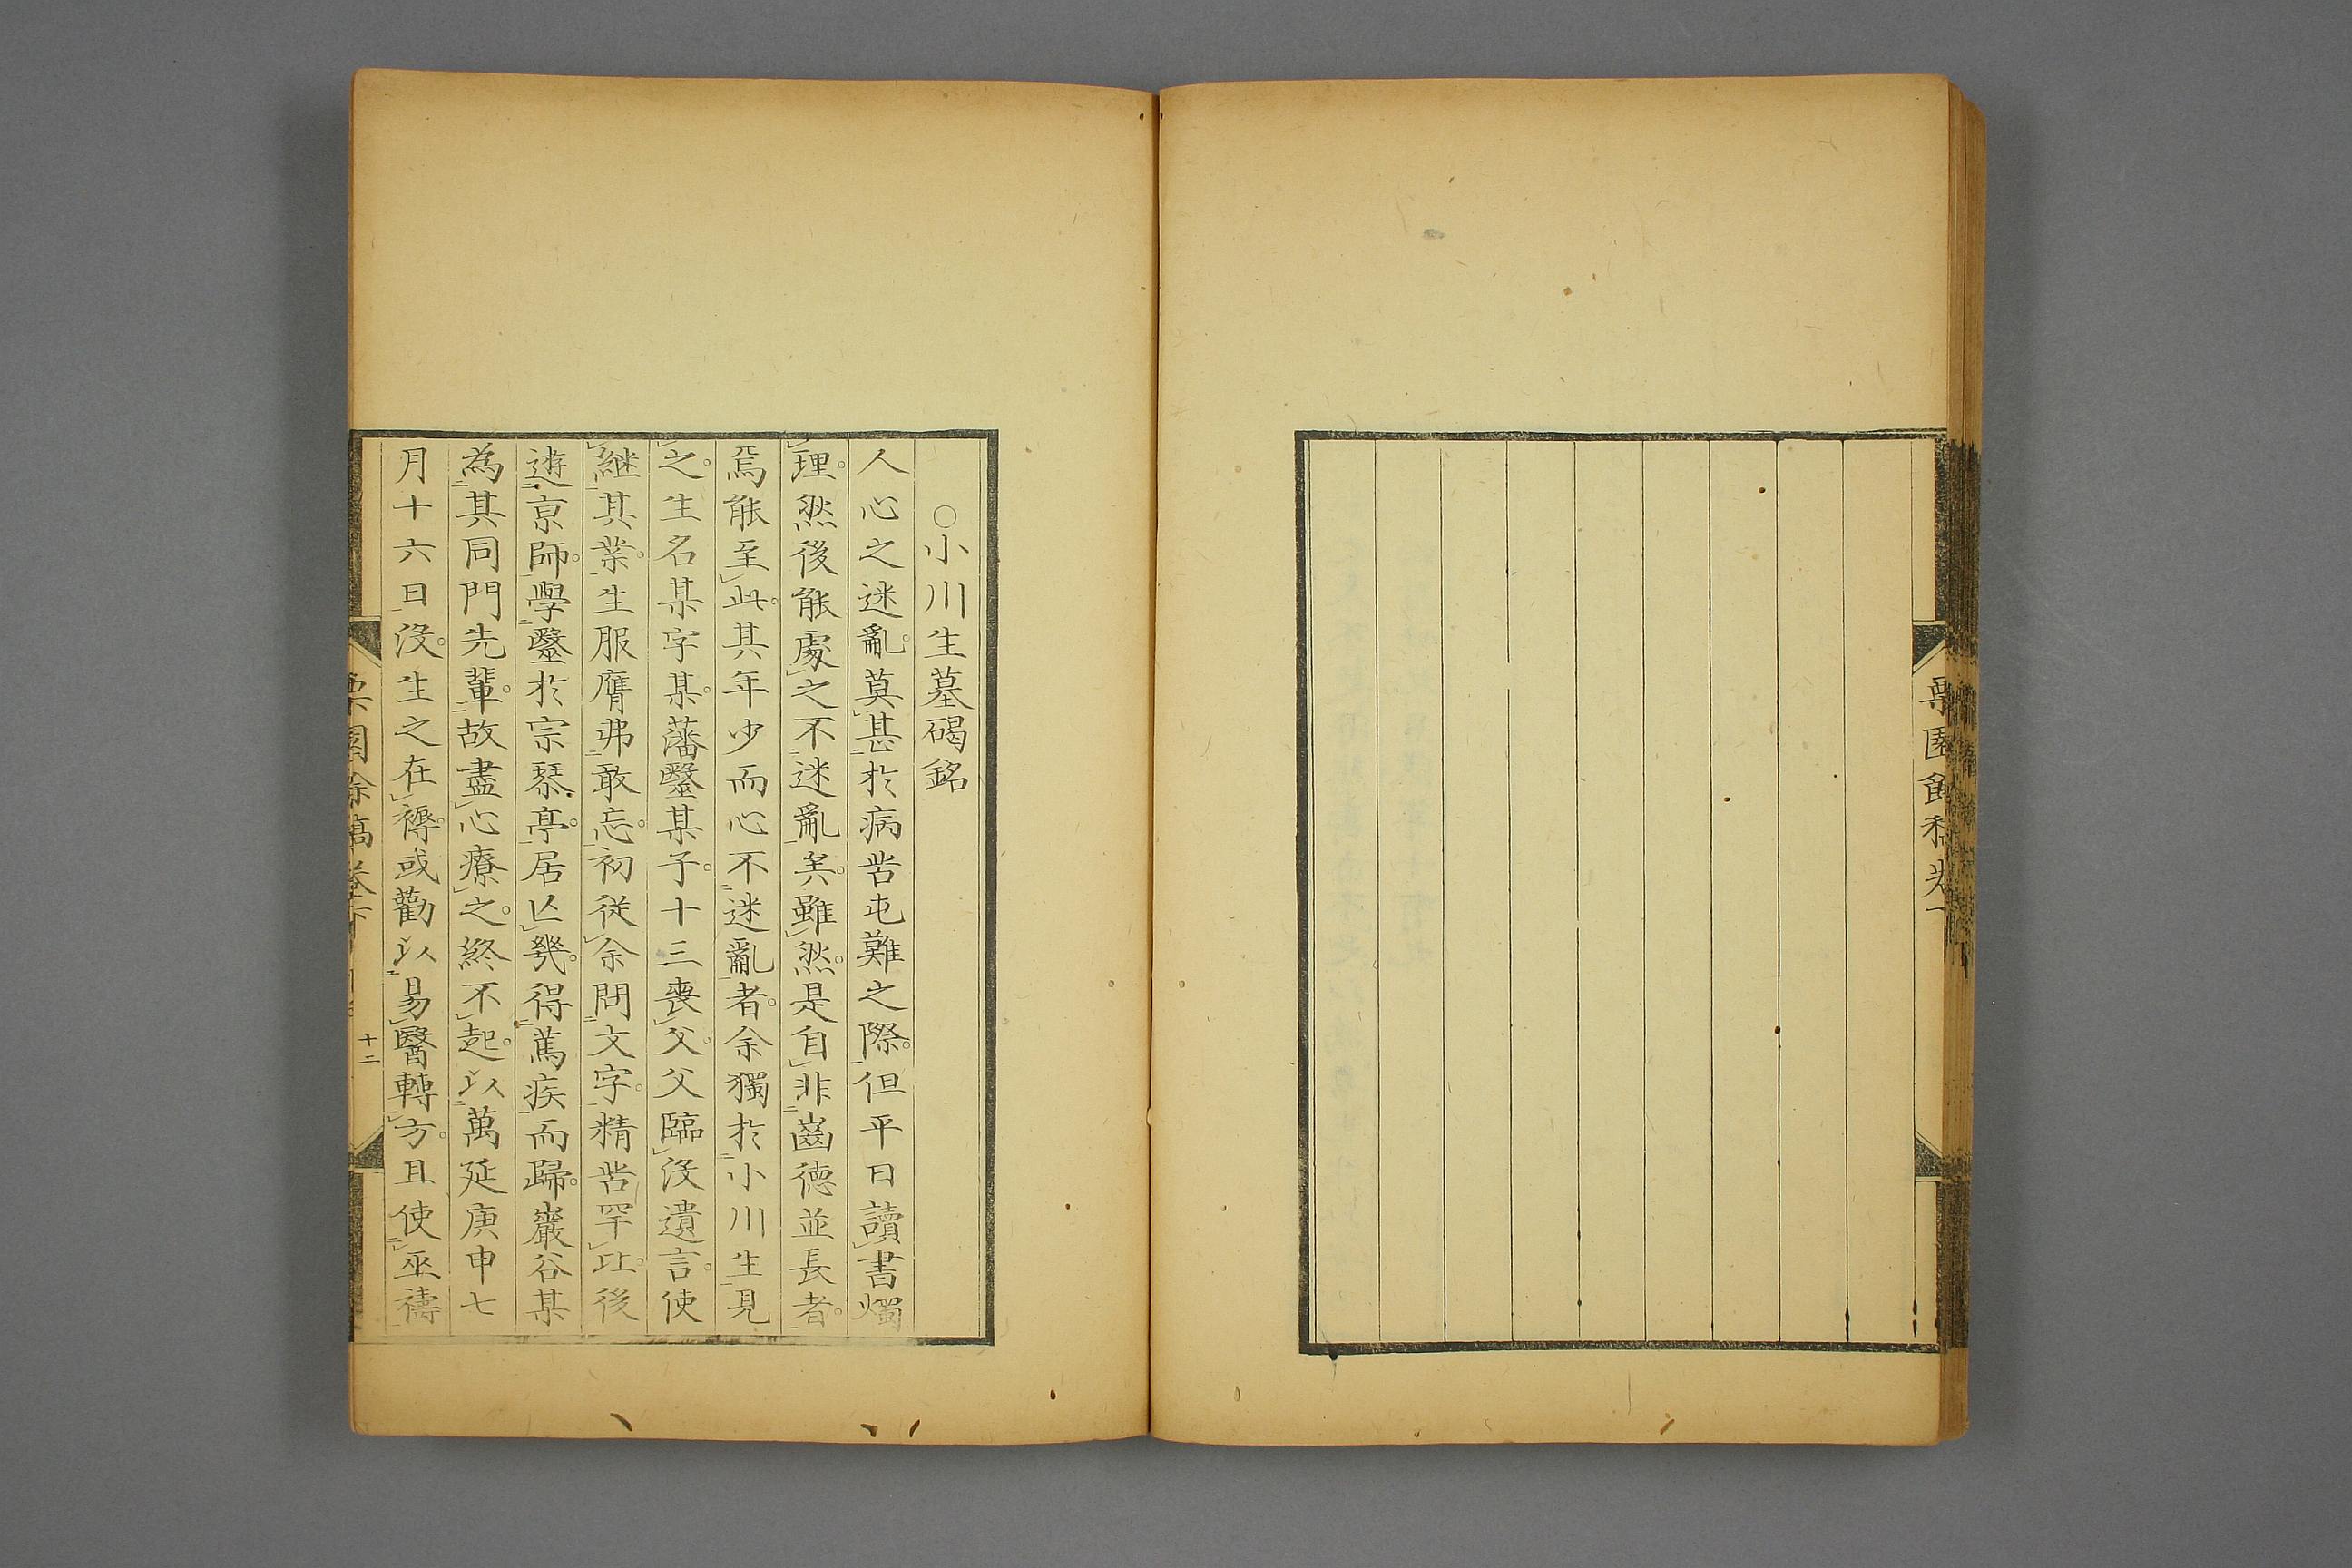 栗園餘稿卷下
○小川生墓碣銘
人心之迷亂。莫甚於病苦屯難之際。但平日讀書燭
理。然後能處之不迷亂矣。雖然。是自非齒德並長者。
焉能至此。其年少而心不迷亂者。余獨於小川生見
之。生名某字某。藩毉某子。十三喪父。父臨没遺言。使
継其業。生服膺弗敢忘。初從余問文字。精苦罕比。後
遊京師。學毉於宗琴亭。居亾幾。得篤疾而歸。巖谷某
為其同門先輩。故盡心療之。終不起。以萬延庚申七
月十六日没。生之在褥。或勸以易醫轉方。且使巫禱
栗園餘稿卷下
十二